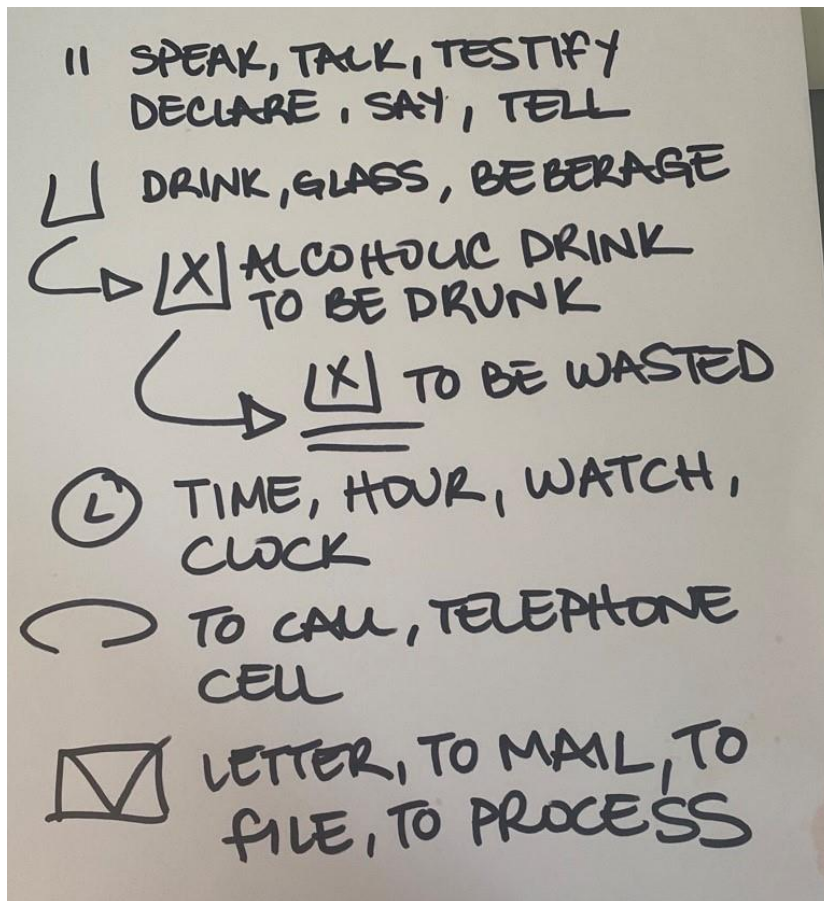 " SPEAK, TALK, TESTIFY
DECLARE, SAY, TELL
DRINK, GLASS, BEBERAGE
X ALCOHOLIC DRINK
TO BE DRUNK
X TO BE WASTED
L TIME, HOUR, WATCH,
CLOCK
TO CALL, TELEPHONE
CELL
LETTER, TO MAIL, TO
FILE, TO PROCESS